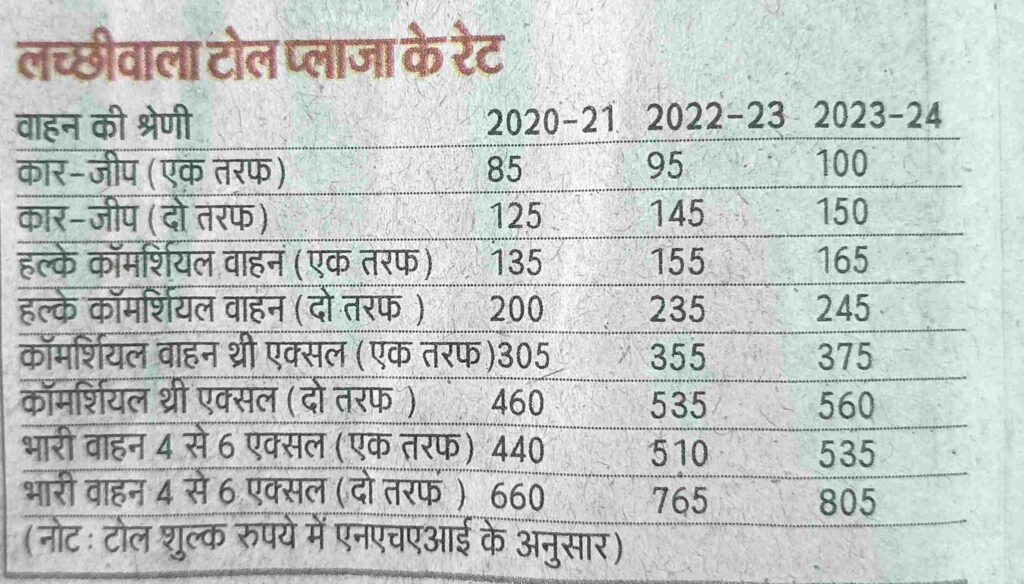 लच्छीवाला टोल प्लाजा के रेट
वाहन की श्रेणी 2020-21 2022-23 2023-24
कार-जीप (एक तरफ) 85 95 100
कार-जीप (दो तरफ) 125 145 150
हल्के कॉमर्शियल वाहन (एक तरफ) 135 155 165
हल्के कॉमर्शियल वाहन (दो तरफ ) 200 235 245
कॉमर्शियल वाहन थ्री एक्सल (एक तरफ) 305 355 375
कॉमर्शियल थ्री एक्सल (दो तरफ ) 460 535 560
भारी वाहन 4 से 6 एक्सल (एक तरफ) 440 510 535
भारी वाहन 4 से 6 एक्सल (दो तरफ ) 660 765 805
(नोट: टोल शुल्क रुपये में एनएचएआई के अनुसार)